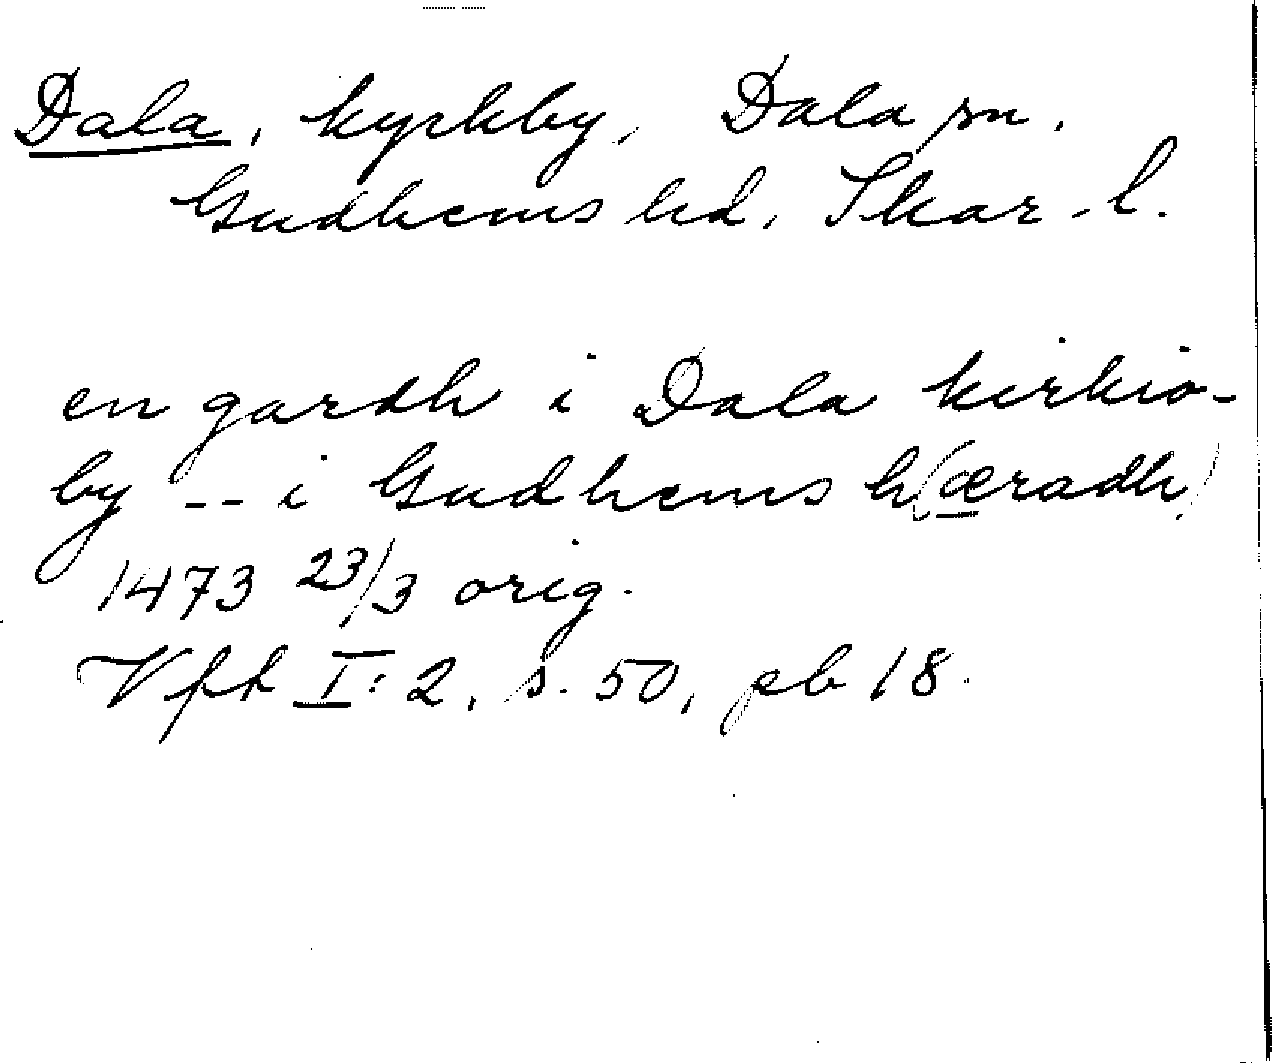 Dala, kyrkby, Dala sn.
Gudhems hd, Skar. l.
en gardh i Dala kirkio-
by -- i Gudhems h(æradh)
1473 23/3 orig.
Vft I:2, s. 50, pb 18.